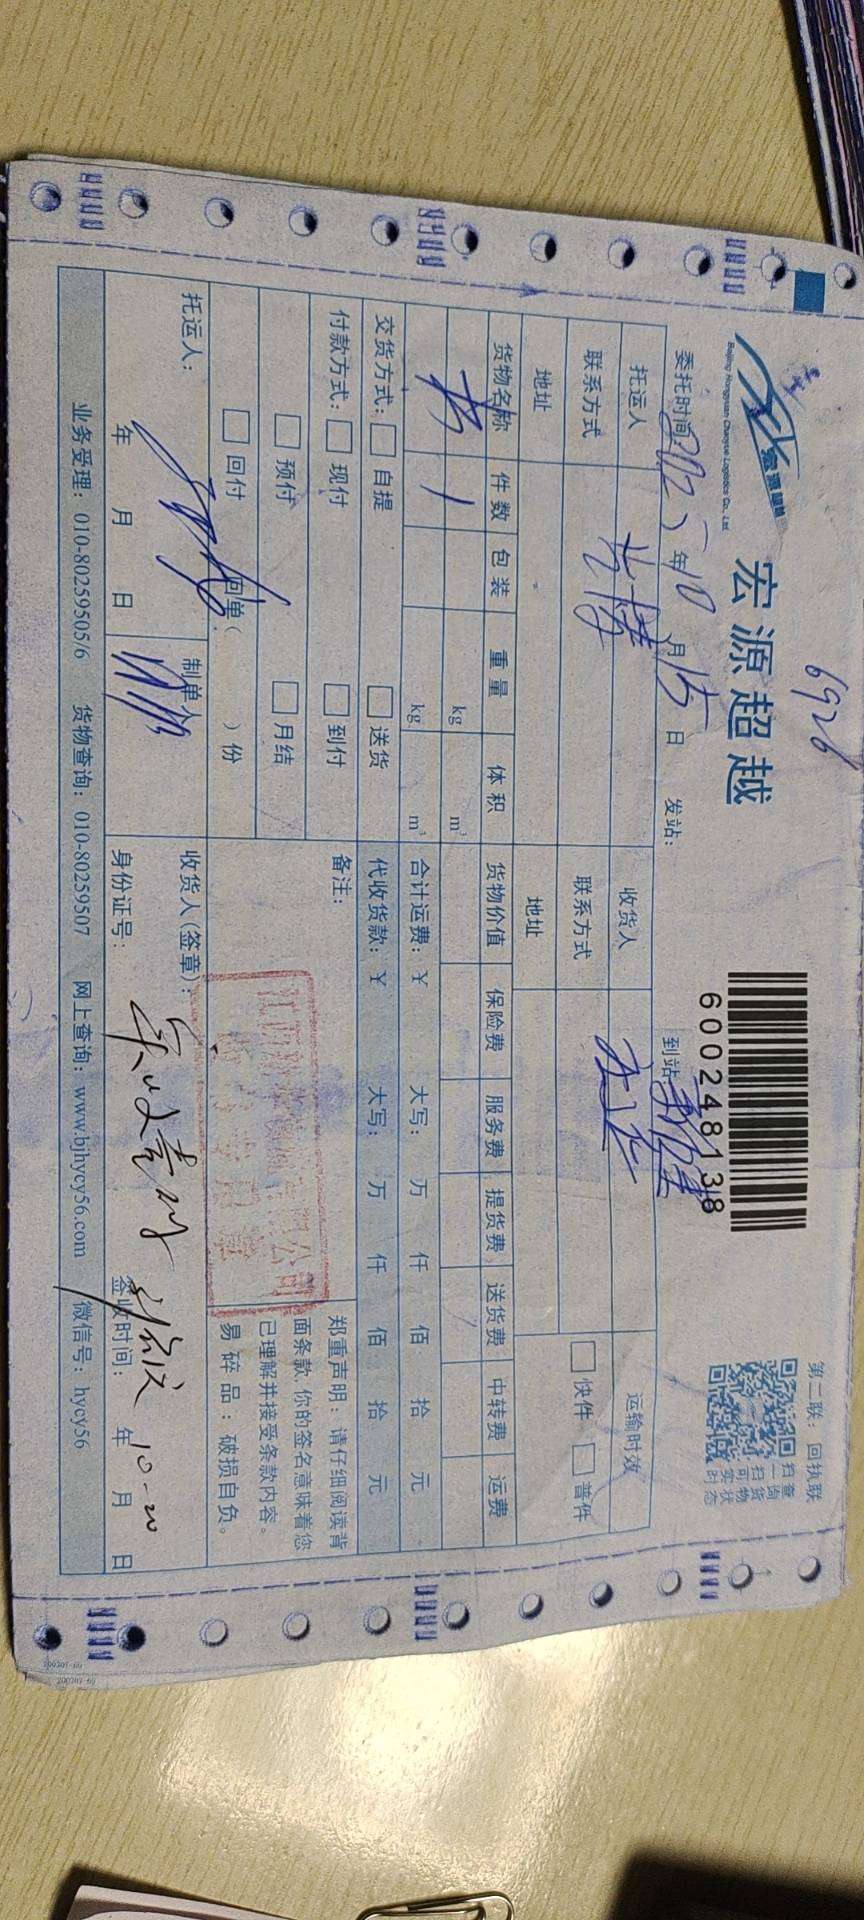 6926
宏源超越
宏源超越
Beijing Hongyuan Chaoyue Logistics Co., Ltd.
6000248138
第二联：回执联
扫一扫可实时
查询货物状态
委托时间 2025年10月15日 发站： 到站： 新疆
托运人 收货人 运输时效
联系方式 联系方式 快件 普件
地址 地址
货物名称 件数 包装 重量 体积 货物价值 保险费 服务费 提货费 送货费 中转费 运费
书 1 kg m³
kg m³ 合计运费：￥ 大写： 万 仟 佰 拾 元
交货方式： 自提 送货 代收货款：￥ 大写： 万 仟 佰 拾 元
付款方式： 现付 到付 备注：
预付 月结
回付 回单（ ）份
郑重声明：请仔细阅读背
面条款，你的签名意味着您
已理解并接受条款内容。
易碎品：破损自负。
托运人： 制单人 收货人（签章）：
年 月 日 身份证号： 签收时间： 年 月 日
10-20
业务受理：010-80259505/6 货物查询：010-80259507 网上查询：www.bjhycy56.com 微信号：hycy56